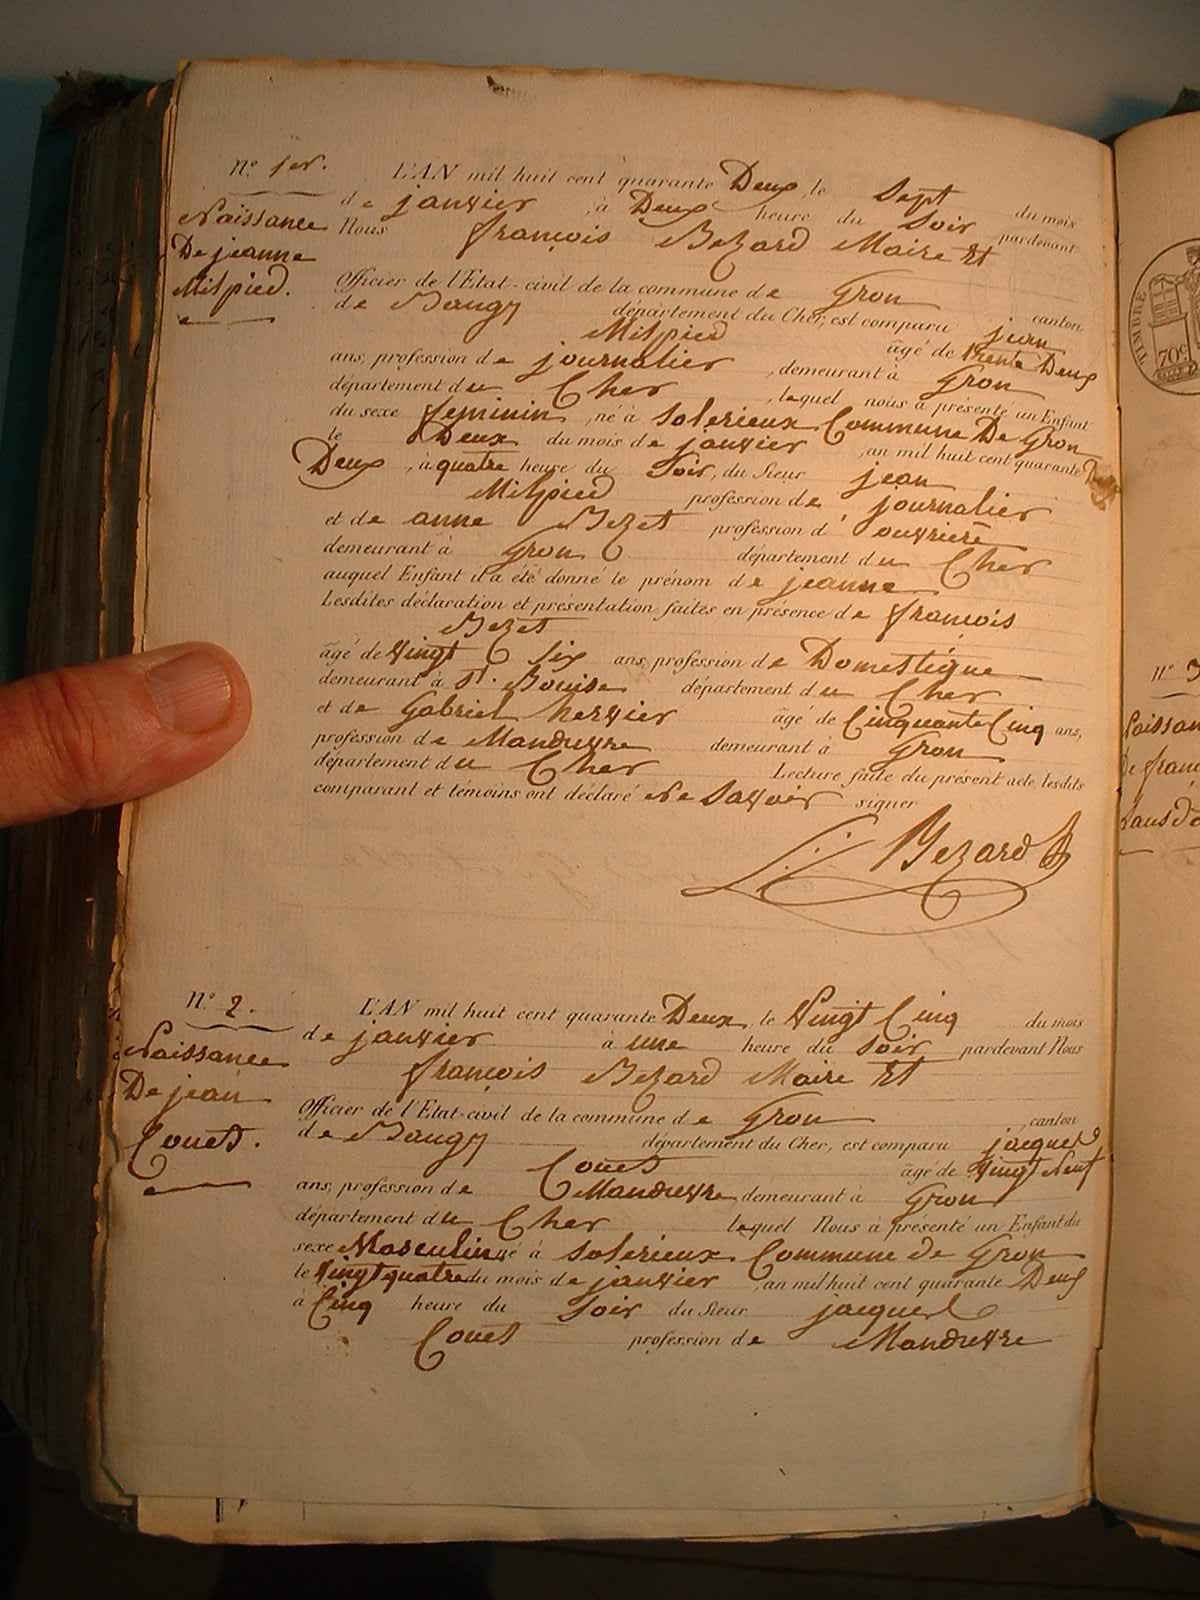 N.º 1er.
Naissance
De jeanne
Milpied.
L'AN mil huit cent quarante Deux, le Sept du mois
de janvier, à Deux heure du Soir pardevant
Nous françois Bezard Maire Et
Officier de l'Etat-civil de la commune de Gron canton
de Baugy département du Cher, est comparu jean
Milpied âgé de trente Deux
ans, profession de journalier, demeurant à Gron
département du Cher, lequel nous a présenté un Enfant
du sexe feminin, né à Solerieux Commune De Gron
le Deux du mois de janvier, an mil huit cent quarante
Deux, à quatre heure du Soir, du Sieur jean
Milpied profession de journalier
et de anne Bezet profession d' ouvriere
demeurant à Gron département du Cher
auquel Enfant il a été donné le prénom de jeanne
Lesdites déclaration et présentation faites en présence de francois
Bezet
âgé de Vingt Six ans, profession de Domestique
demeurant à St. Bouise département du Cher
et de Gabriel hervier âgé de Cinquante Cinq ans,
profession de Manduvre demeurant à Gron
département du Cher Lecture faite du présent acte lesdits
comparant et témoins ont déclaré Ne Savoir signer
Bezard
N.º 2.
Naissance
De jean
Couet.
L'AN mil huit cent quarante Deux, le Vingt Cinq du mois
de janvier à une heure du Soir pardevant Nous
françois Bezard Maire Et
Officier de l'Etat-civil de la commune de Gron canton
de Baugy département du Cher, est comparu jacques
Couet âgé de Vingt Neuf
ans, profession de Manduvre demeurant à Gron
département du Cher lequel Nous à présenté un Enfant du
sexe Masculin né à Solerieux Commune de Gron
le Vingt quatre du mois de janvier, an mil huit cent quarante Deux
à Cinq heure du Soir du Sieur jacques
Couet profession de Manduvre
TIMBRE
70c
N.º 3
Naissan
De franc